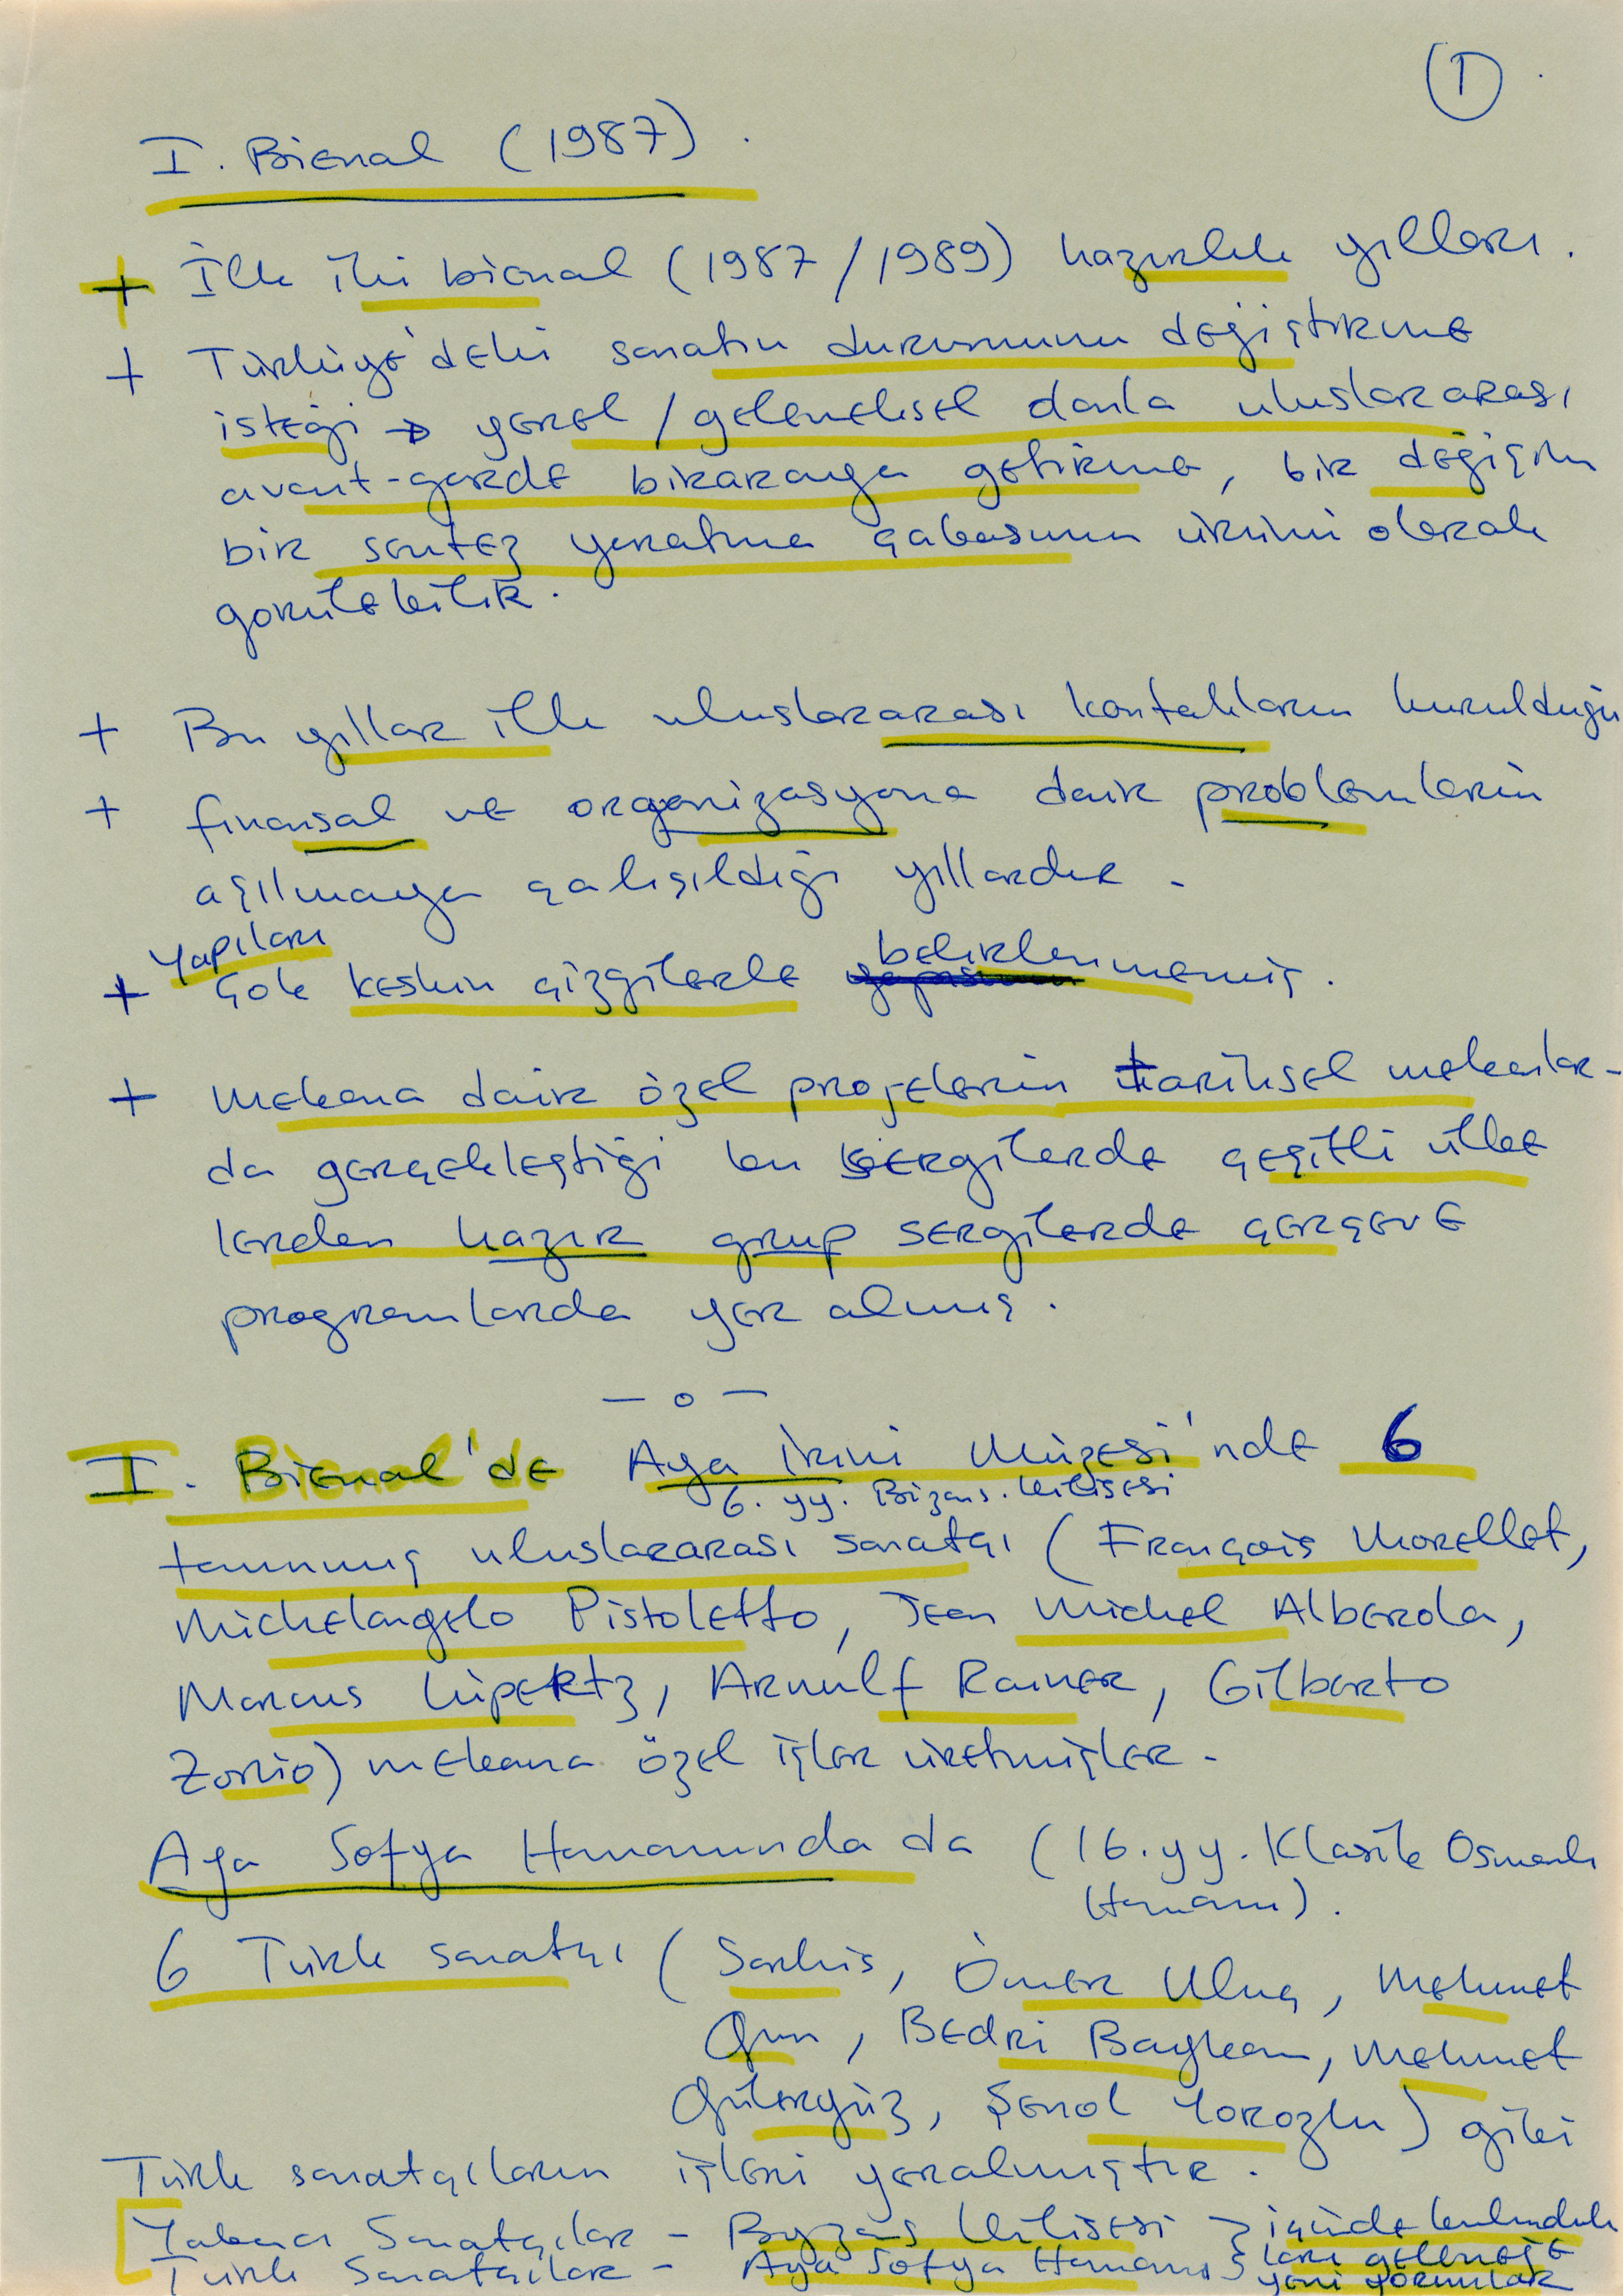 1
I. Bienal (1987).
+ İlk iki bienal (1987/1989) hazırlık yılları.
+ Türkiye'deki sanatın durumunu değiştirme
isteği → yerel/geleneksel olanla uluslararası
avant-garde biraraya getirme, bir değişim
bir sentez yaratma çabasının ürünü olarak
görülebilir.
+ Bu yıllar ilk uluslararası kontakların kurulduğu
+ finansal ve organizasyona dair problemlerin
aşılmaya çalışıldığı yıllardır.
Yapıları
+ çok keskin çizgilerle belirlenmemiş.
+ Mekana dair özel projelerin tarihsel mekanlar-
da gerçekleştiği bu sergilerde çeşitli ülke
lerden hazır grup sergilerde çerçeve
programlarda yer almış.
— o —
I. Bienal'de Aya İrini Müzesi'nde 6
6. yy. Bizans. kilisesi
tanınmış uluslararası sanatçı (François Morellet,
Michelangelo Pistoletto, Jean Michel Alberola,
Marcus Lüpertz, Arnulf Rainer, Gilberto
Zorio) mekana özel işler üretmişler.
Aya Sofya Hamamında da (16.yy. Klasik Osmanlı
Hamamı).
6 Türk sanatçı (Sarkis, Ömer Uluç, Mehmet
Gün, Bedri Baykam, Mehmet
Güleryüz, Şenol Yorozlu) gibi
Türk sanatçıların işleri yeralmıştır.
Yabancı Sanatçılar - Byzans kilisesi } içinde bulunduk
Türk Sanatçılar - Aya Sofya Hamamı } ları geleneğe
yeni yorumlar